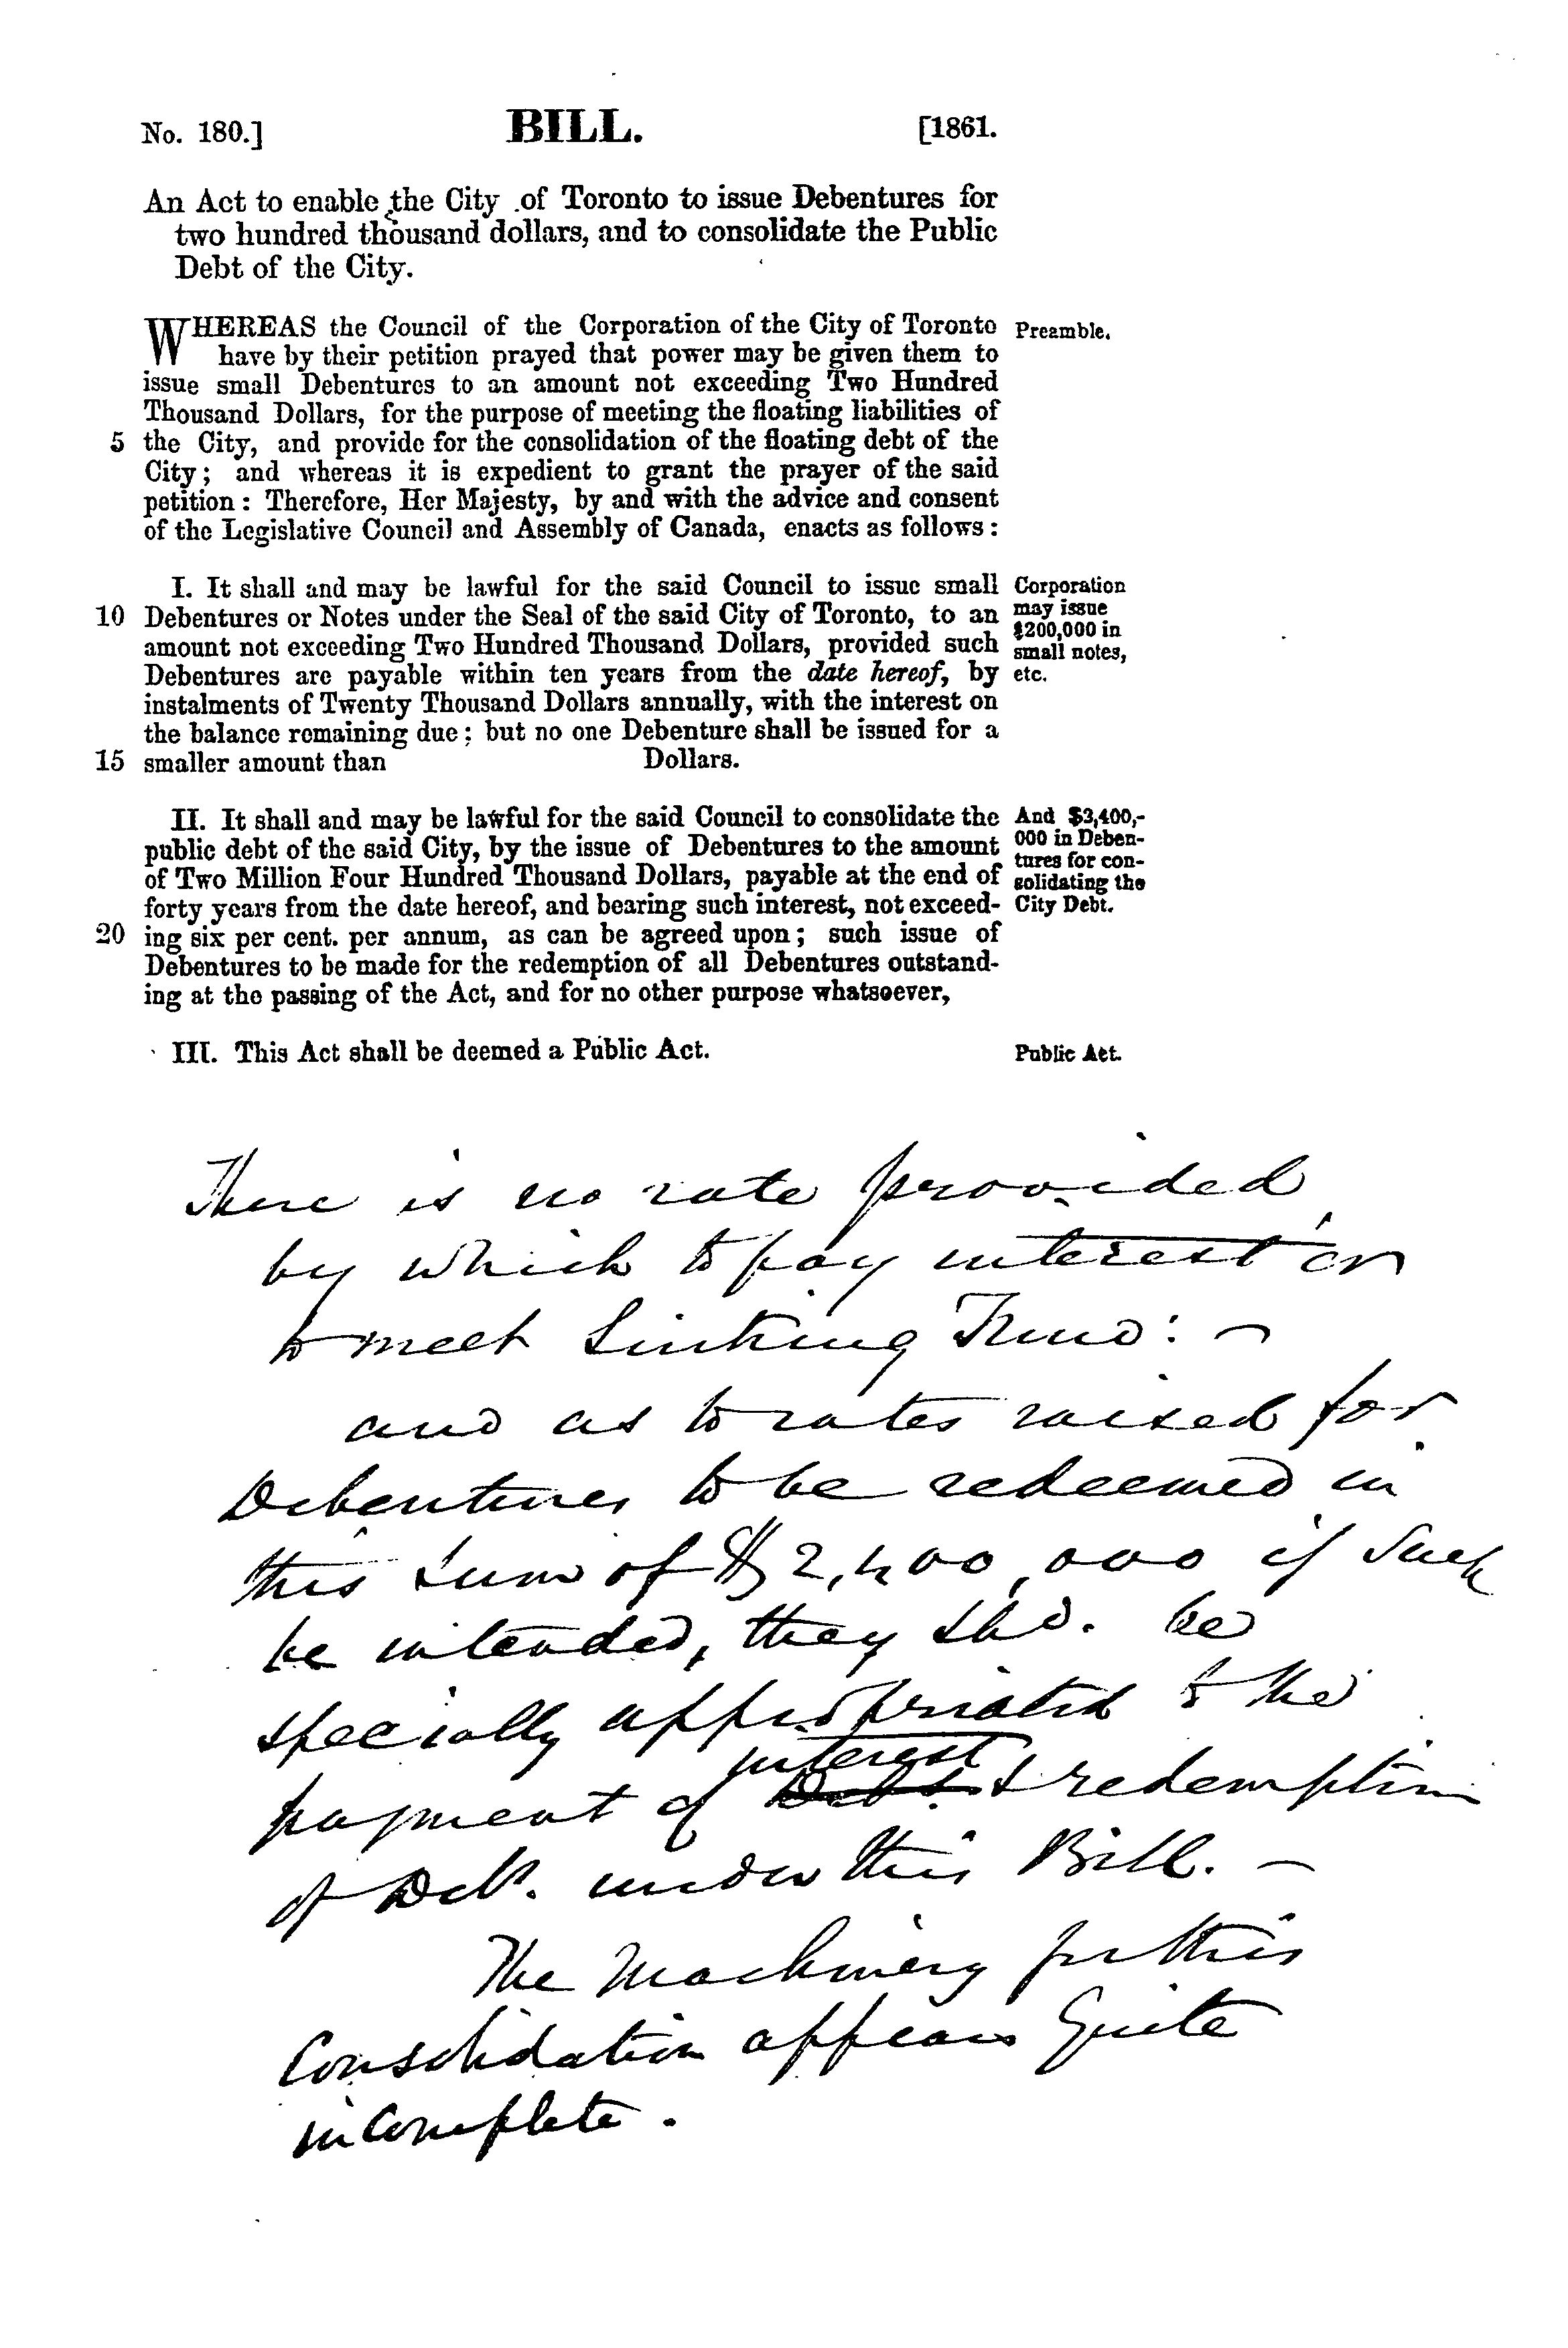 No. 180.] BILL. [1861.
An Act to enable the City of Toronto to issue Debentures for
two hundred thousand dollars, and to consolidate the Public
Debt of the City.
WHEREAS the Council of the Corporation of the City of Toronto Preamble.
have by their petition prayed that power may be given them to
issue small Debentures to an amount not exceeding Two Hundred
Thousand Dollars, for the purpose of meeting the floating liabilities of
5 the City, and provide for the consolidation of the floating debt of the
City; and whereas it is expedient to grant the prayer of the said
petition: Therefore, Her Majesty, by and with the advice and consent
of the Legislative Council and Assembly of Canada, enacts as follows:
I. It shall and may be lawful for the said Council to issue small Corporation
10 Debentures or Notes under the Seal of the said City of Toronto, to an may issue
amount not exceeding Two Hundred Thousand Dollars, provided such $200,000 in small notes,
Debentures are payable within ten years from the date hereof, by etc.
instalments of Twenty Thousand Dollars annually, with the interest on
the balance remaining due; but no one Debenture shall be issued for a
15 smaller amount than Dollars.
II. It shall and may be lawful for the said Council to consolidate the And $3,400,-
public debt of the said City, by the issue of Debentures to the amount 000 in Deben-
of Two Million Four Hundred Thousand Dollars, payable at the end of tures for con- solidating the
forty years from the date hereof, and bearing such interest, not exceed- City Debt.
20 ing six per cent. per annum, as can be agreed upon; such issue of
Debentures to be made for the redemption of all Debentures outstand-
ing at the passing of the Act, and for no other purpose whatsoever,
III. This Act shall be deemed a Public Act. Public Act.
There is no rate provided
by which to pay interest or
to meet Sinking Fund: –
and as to rates raised for
Debentures to be redeemed in
this sum of $2,400,000 if such
be intended, they shd. be
specially appropriated to the
interest
payment of Debs. & redemption
of Debs. under this Bill. –
The Machinery for this
Consolidation appears Quite
inComplete.